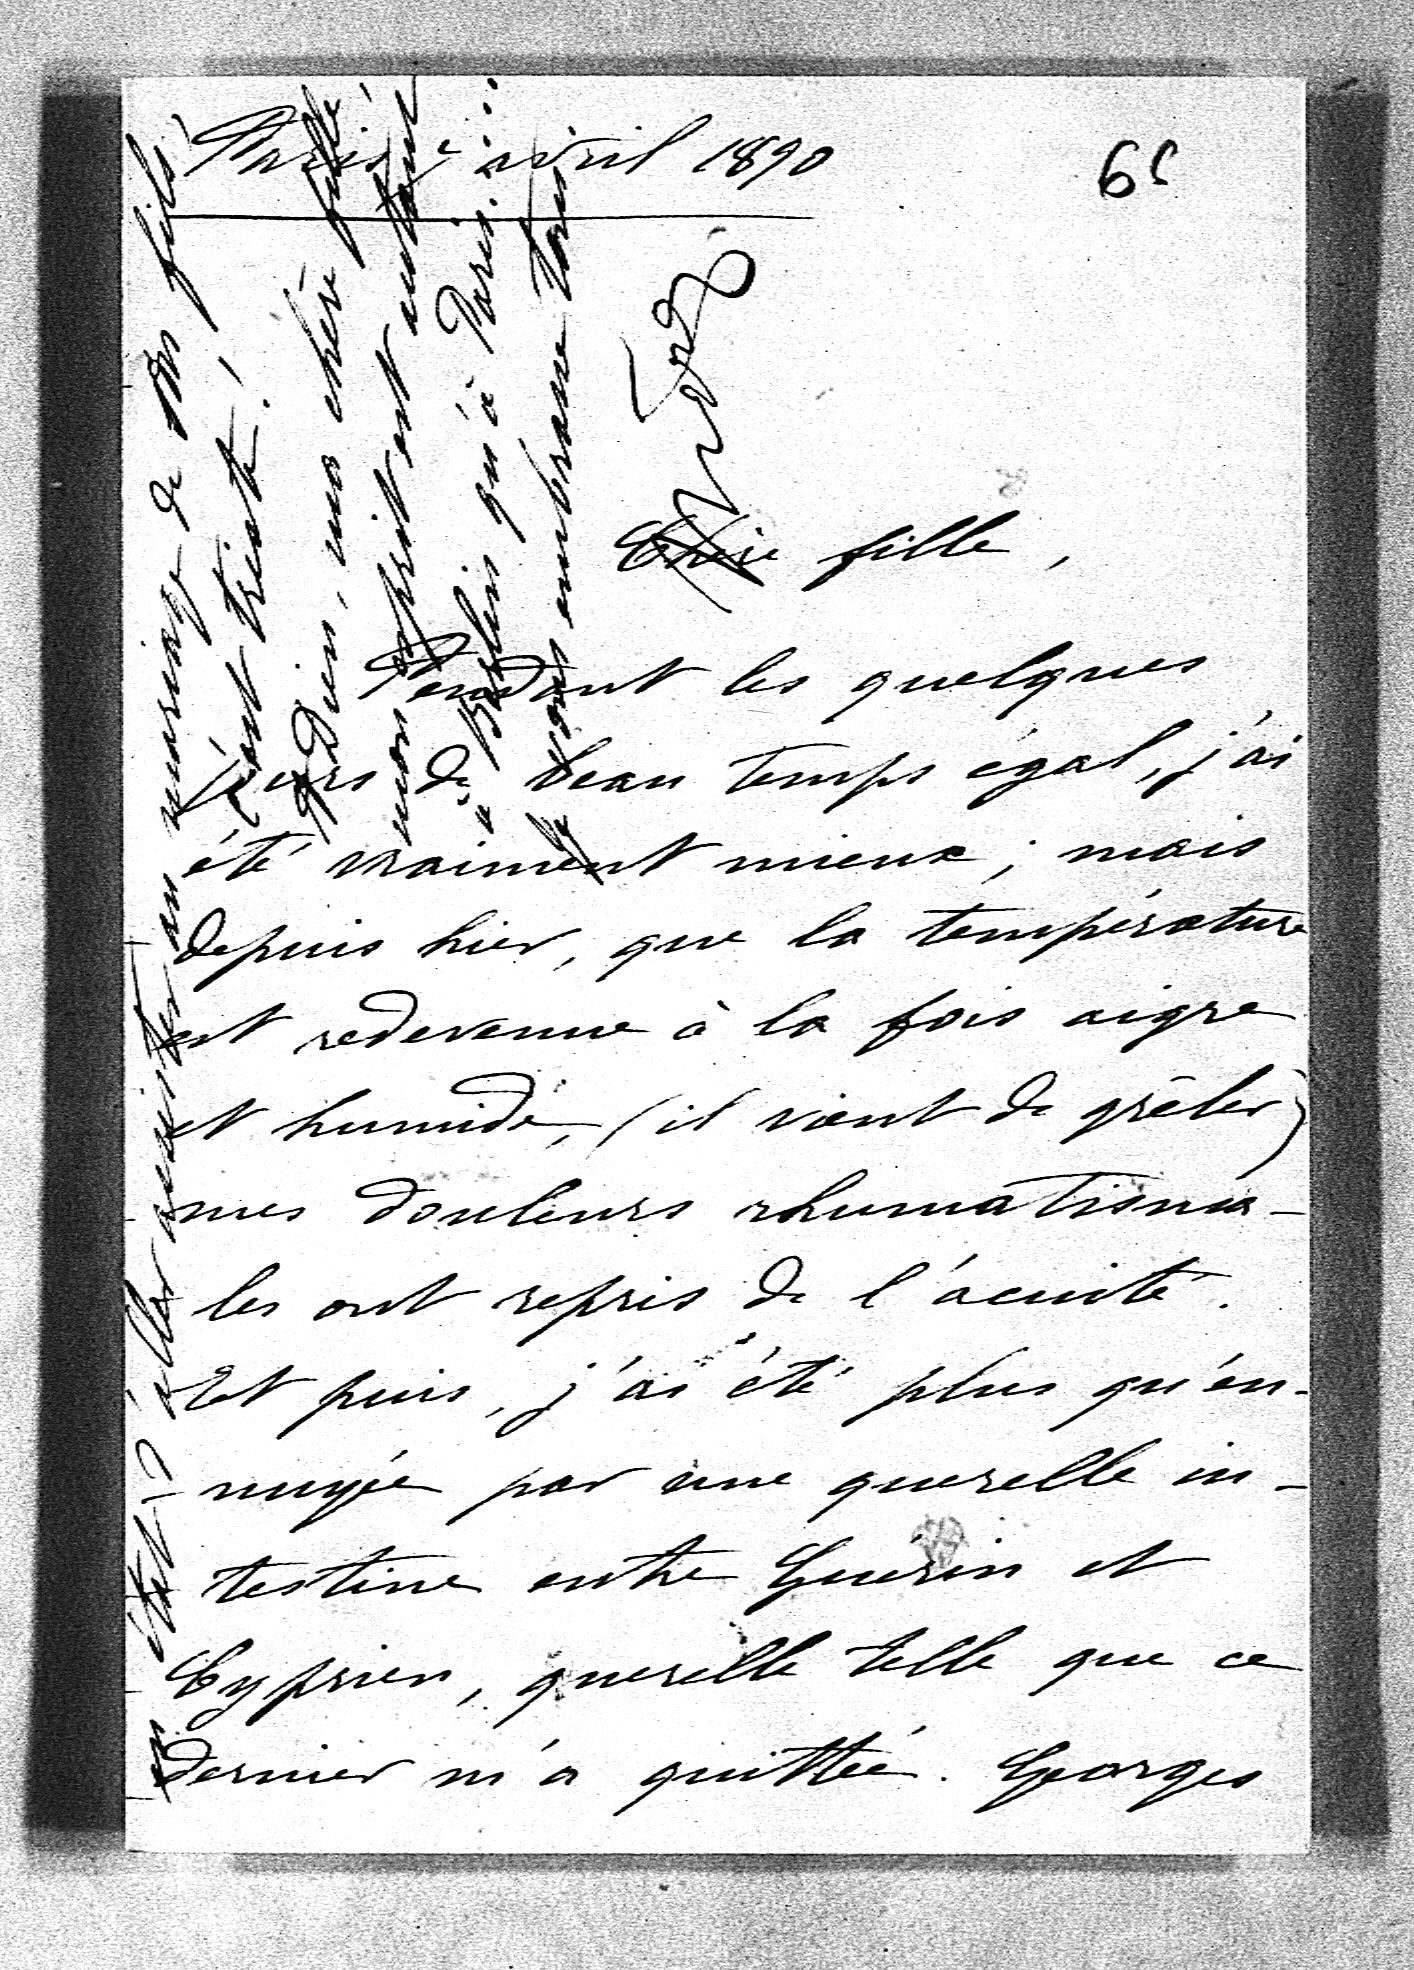 Paris 7 avril 1890
65
Chère fille,
Pendant les quelques
jours de beau temps égal, j'ai
été vraiment mieux; mais
depuis hier, que la température
est redevenue à la fois aigre
et humide, (il vient de grêler)
mes douleurs rhumatisma-
les ont repris de l'acuité.
Et puis, j'ai été plus qu'en-
nuyée par une querelle in-
testine entre Guérin et
Cyprien, querelle telle que ce
dernier m'a quittée. Georges
en état d'aller assister au mariage de vos fils,
c'est triste!
Adieu, ma chère fille
mon esprit est autant
à Berlin qu'à Paris....
Je vous embrasse tous